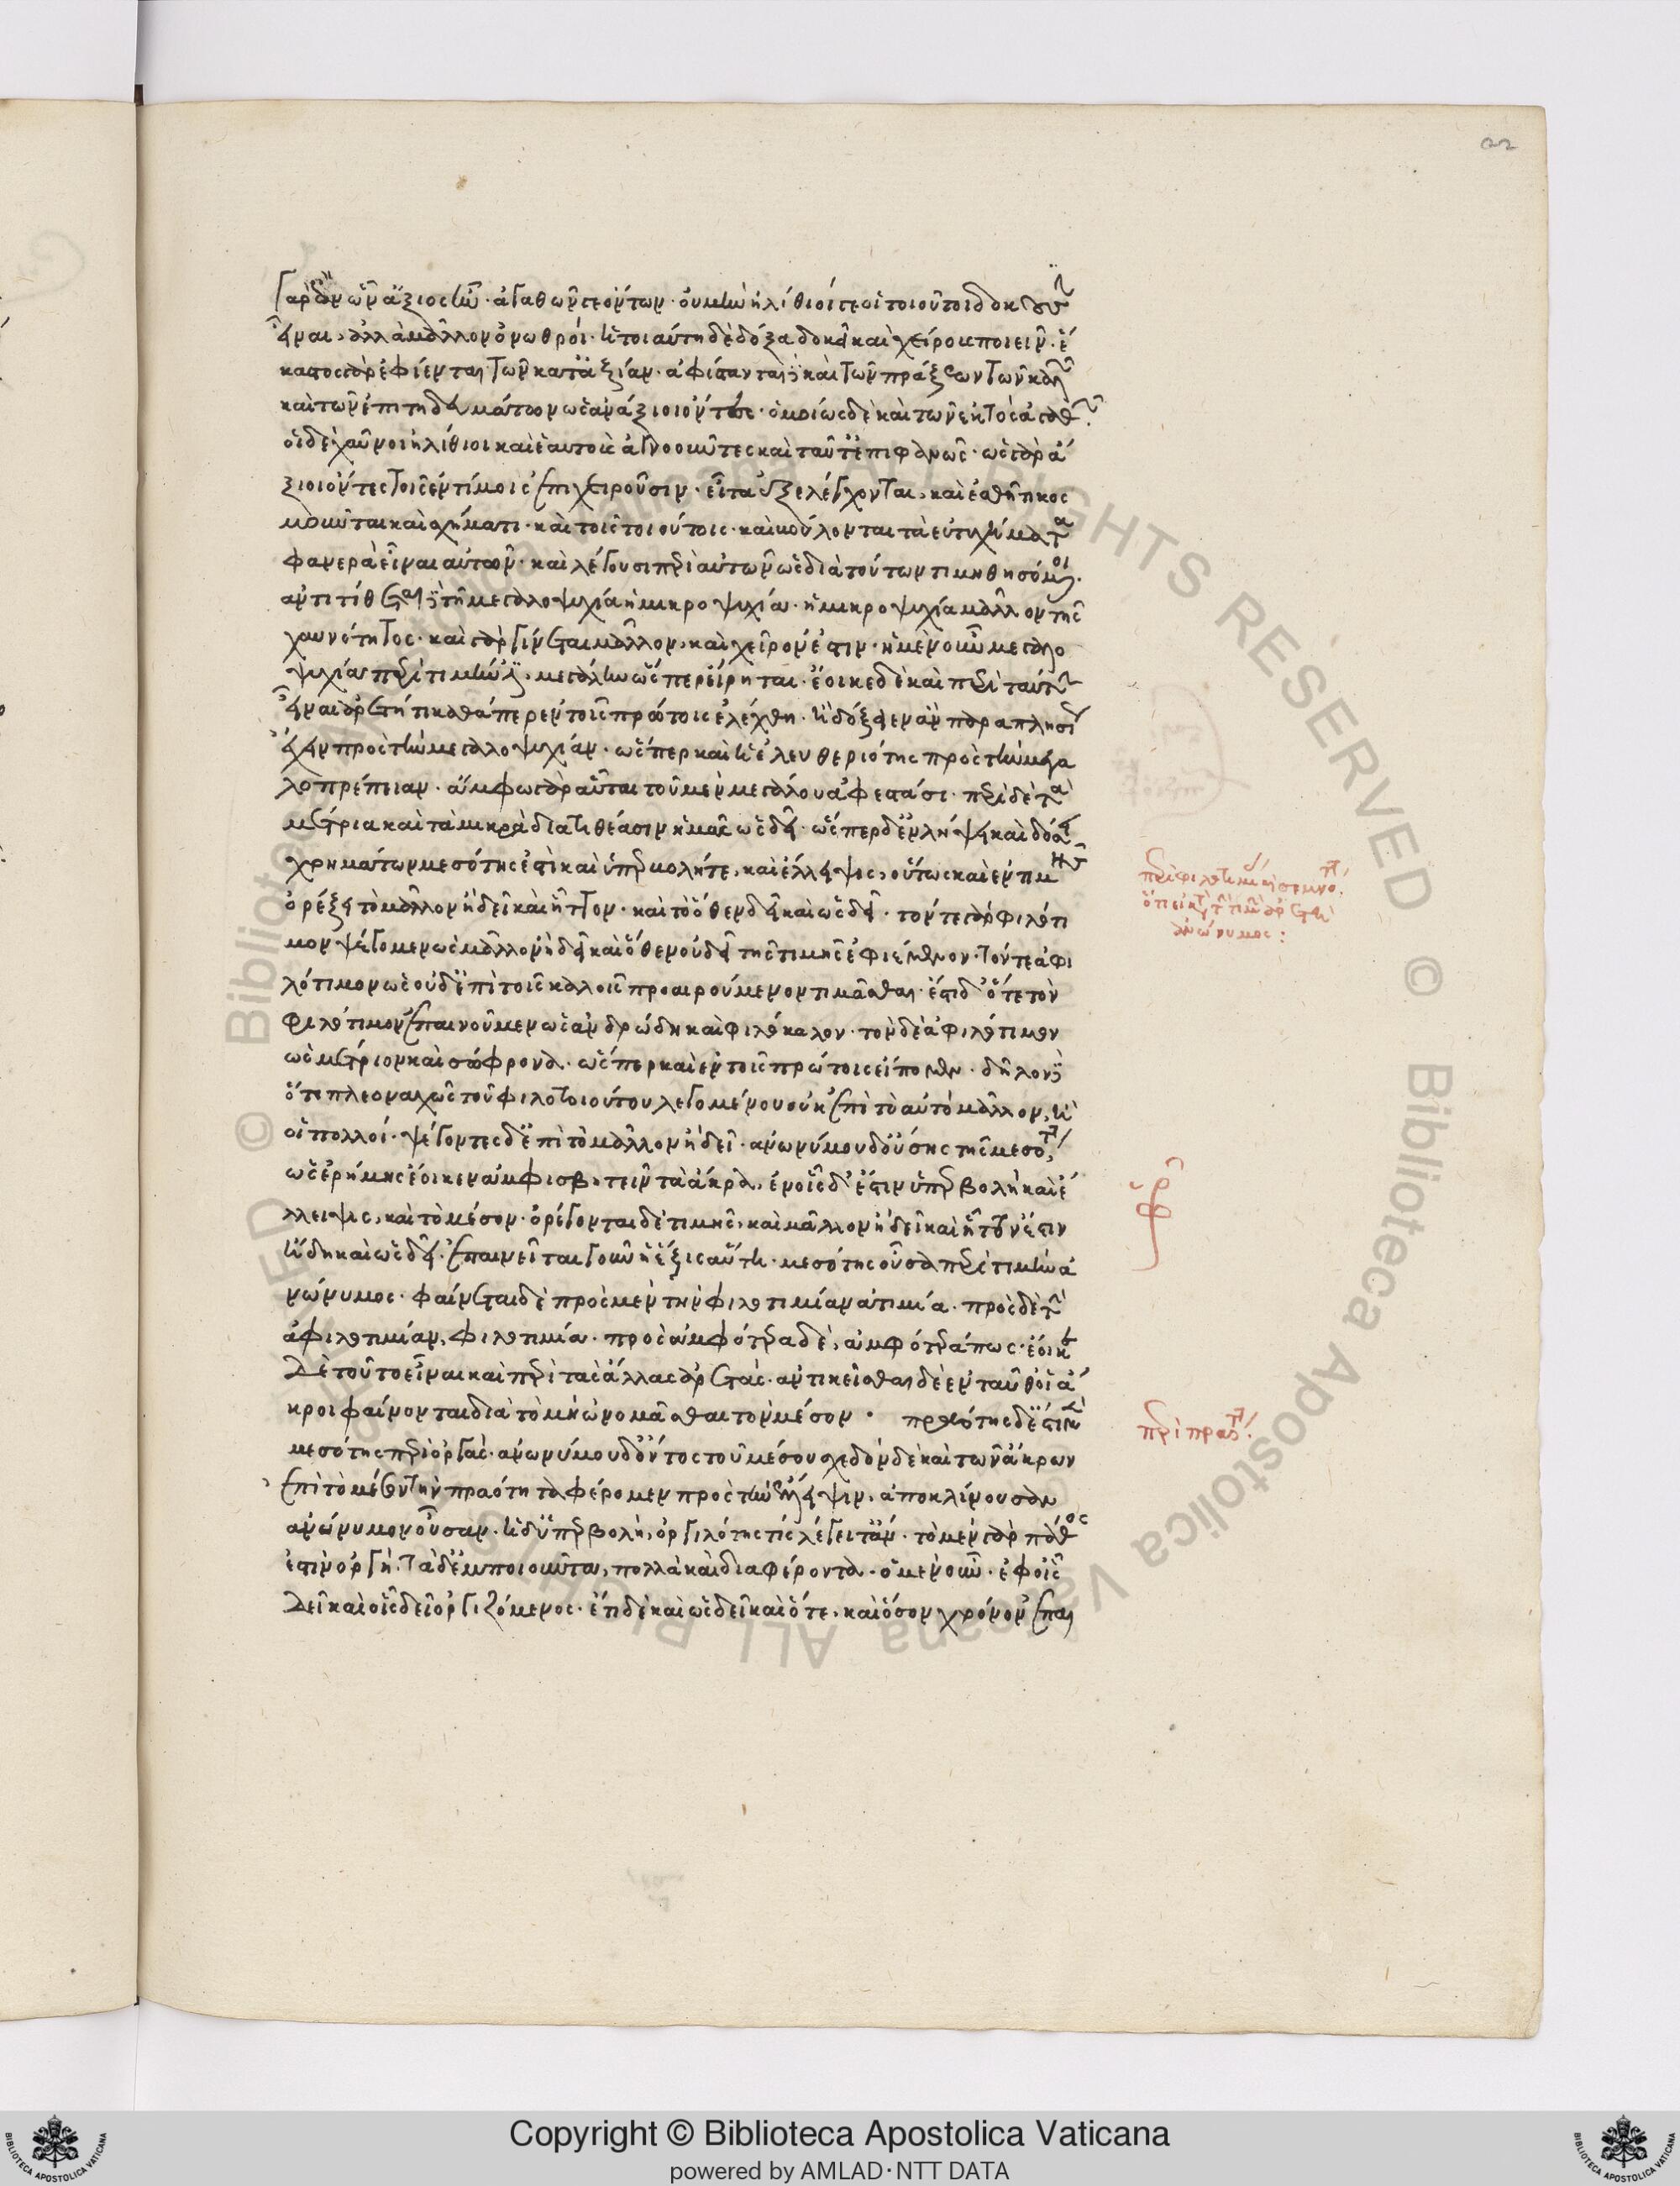 γὰρ ἂν ὧν ἄξιος ἦν· ἀγαθῶν γε ὄντων· οὐ μὴν ἠλίθιοί γε οἱ τοιοῦτοι δοκοῦσιν
εἶναι, ἀλλὰ μᾶλλον ὀκνηροί· ἡ τοιαύτη δὲ δόξα δοκεῖ καὶ χείρους ποιεῖν· ἕ
καστοι γὰρ ἐφίενται τῶν κατ' ἀξίαν· ἀφίστανται δὲ καὶ τῶν πράξεων τῶν καλῶν
καὶ τῶν ἐπιτηδευμάτων ὡς ἀνάξιοι ὄντες· ὁμοίως δὲ καὶ τῶν ἐκτὸς ἀγαθῶν.
οἱ δὲ χαῦνοι ἠλίθιοι καὶ ἑαυτοὺς ἀγνοοῦντες καὶ ταῦτ' ἐπιφανῶς· ὡς γὰρ ἄ
ξιοι ὄντες τοῖς ἐντίμοις ἐπιχειροῦσιν· εἶτα ἐξελέγχονται, καὶ ἐσθῆτι κος
μοῦνται καὶ σχήματι· καὶ τοῖς τοιούτοις· καὶ βούλονται τὰ εὐτυχήματα
φανερὰ εἶναι αὐτῶν· καὶ λέγουσι περὶ αὐτῶν ὡς διὰ τούτων τιμηθησόμενοι.
ἀντιτίθεται δὲ τῇ μεγαλοψυχίᾳ ἡ μικροψυχία· ἡ μικροψυχία μᾶλλον τῆς
χαυνότητος· καὶ γὰρ γίνεται μᾶλλον, καὶ χεῖρόν ἐστιν· ἡ μὲν οὖν μεγαλο
ψυχία περὶ τιμήν ἐστι μεγάλην ὥσπερ εἴρηται· ἔοικε δὲ καὶ περὶ ταύτην
εἶναι ἀρετή τις καθάπερ ἐν τοῖς πρώτοις ἐλέχθη· ἣ δόξειεν ἂν παραπλησίως
ἔχειν πρὸς τὴν μεγαλοψυχίαν· ὥσπερ καὶ ἡ ἐλευθεριότης πρὸς τὴν μεγα
λοπρέπειαν· ἄμφω γὰρ αὗται τοῦ μὲν μεγάλου ἀφεστᾶσι· περὶ δὲ τὰ
μέτρια καὶ τὰ μικρὰ διατιθέασιν ἡμᾶς ὡς δεῖ· ὥσπερ δ' ἐν λήψει καὶ δόσει
χρημάτων μεσότης ἐστὶ καὶ ὑπερβολή τε, καὶ ἔλλειψις, οὕτως καὶ ἐν τιμῆς
ὀρέξει τὸ μᾶλλον ἢ δεῖ καὶ ἧττον· καὶ τὸ ὅθεν δεῖ καὶ ὡς δεῖ· τόν τε γὰρ φιλότι
μον ψέγομεν ὡς μᾶλλον ἢ δεῖ καὶ ὅθεν οὐ δεῖ τῆς τιμῆς ἐφιέμενον· τόν τε ἀφι
λότιμον ὡς οὐδ' ἐπὶ τοῖς καλοῖς προαιρούμενον τιμᾶσθαι· ἔστι δ' ὅτε τὸν
φιλότιμον ἐπαινοῦμεν ὡς ἀνδρώδη καὶ φιλόκαλον· τὸν δὲ ἀφιλότιμον
ὡς μέτριον καὶ σώφρονα· ὥσπερ καὶ ἐν τοῖς πρώτοις εἴπομεν· δῆλον δὲ
ὅτι πλεοναχῶς τοῦ φιλοτοιούτου λεγομένου οὐκ ἐπὶ τὸ αὐτὸ μᾶλλον, ἢ
οἱ πολλοί· ψέγοντες δ' ἐπὶ τὸ μᾶλλον ἢ δεῖ· ἀνωνύμου δ' οὔσης τῆς μεσότητος,
ὡς ἐρήμης ἔοικεν ἀμφισβητεῖν τὰ ἄκρα, ἐν οἷς δ' ἔστιν ὑπερβολὴ καὶ ἔ
λλειψις, καὶ τὸ μέσον· ὀρέγονται δὲ τιμῆς, καὶ μᾶλλον ἢ δεῖ καὶ ἧττον ἔστιν
ἤδη καὶ ὡς δεῖ· ἐπαινεῖται γοῦν ἡ ἕξις αὕτη· μεσότης οὖσα περὶ τιμὴν ἀ
νώνυμος· φαίνεται δὲ πρὸς μὲν τὴν φιλοτιμίαν ἀτιμία· πρὸς δὲ τὴν
ἀφιλοτιμίαν, φιλοτιμία· πρὸς ἀμφότερα δὲ, ἀμφότερά πως· ἔοικε
δὲ τοῦτο εἶναι καὶ περὶ τὰς ἄλλας ἀρετάς· ἀντικεῖσθαι δὲ ἐνταῦθ' οἱ ἄ
κροι φαίνονται διὰ τὸ μὴ ὠνομάσθαι τὸν μέσον· πραότης δ' ἐστὶ μὲν
μεσότης περὶ ὀργάς· ἀνωνύμου δ' ὄντος τοῦ μέσου σχεδὸν δὲ καὶ τῶν ἄκρων
ἐπὶ τὸ μέσον τὴν πραότητα φέρομεν πρὸς τὴν ἔλλειψιν, ἀποκλίνουσαν
ἀνώνυμον οὖσαν· ἡ δ' ὑπερβολὴ, ὀργιλότης τις λέγοιτ' ἄν· τὸ μὲν γὰρ πάθος
ἐστὶν ὀργή· τὰ δ' ἐμποιοῦντα, πολλὰ καὶ διαφέροντα· ὁ μὲν οὖν· ἐφ' οἷς
δεῖ καὶ οἷς δεῖ ὀργιζόμενος· ἔτι δὲ καὶ ὡς δεῖ καὶ ὅτε, καὶ ὅσον χρόνον ἐπαι
ἀνώνυμος:
περὶ πραότητος.